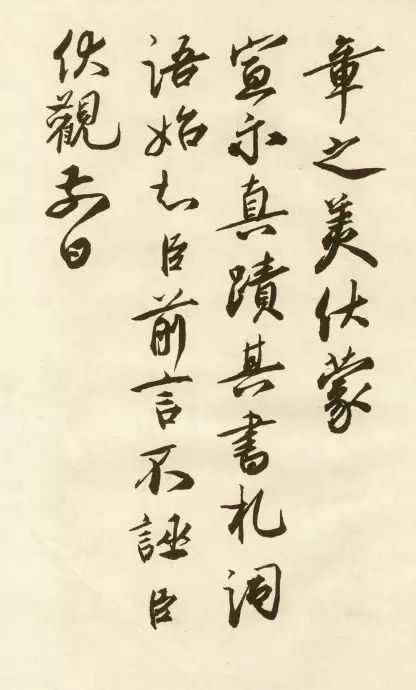 章之美伏蒙
宣示真蹟其書札词
语始知臣前言不誣臣
伏觀前日